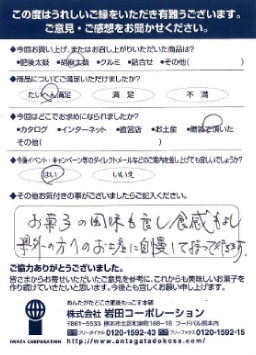 この度はうれしいご縁をいただき有難うございます。
ご意見・ご感想をお聞かせください。
◆今回お買い上げ、またはお召し上がりいただいた商品は?
・肥後太鼓 ・胡麻太鼓 ・クルミ ・詰合せ ・その他( )
◆商品についてご満足いただけましたか?
たいへん満足 満足 不満
◆今回はどこでお求めになられましたか?
・カタログ ・インターネット ・直営店 ・お土産 ・贈答で頂いた
その他( )
◆今後イベント・キャンペーン等のダイレクトメールなどのご案内を差し上げても宜しいでしょうか?
はい いいえ
◆その他お気付きの事がございましたらご記入ください。
お菓子の風味も良し、食感もよし
県外の方へのお土産に自慢して持って行けます。
ご協力ありがとうございました。
皆さまからお寄せいただいたご意見を参考に、これからも美味しいお菓子を
作り続けていきたいと思います。今後とも宜しくお願い申し上げます。
あんたがたどこさ肥後もっこす本舗
株式会社 岩田コーポレーション
〒861-5533 熊本市北区和泉町168-18 フードパル熊本内
フリーダイヤル 0120-1592-43 フリーファックス 0120-1592-15
IWATA CORPORATION http://www.antagatadokosa.com/